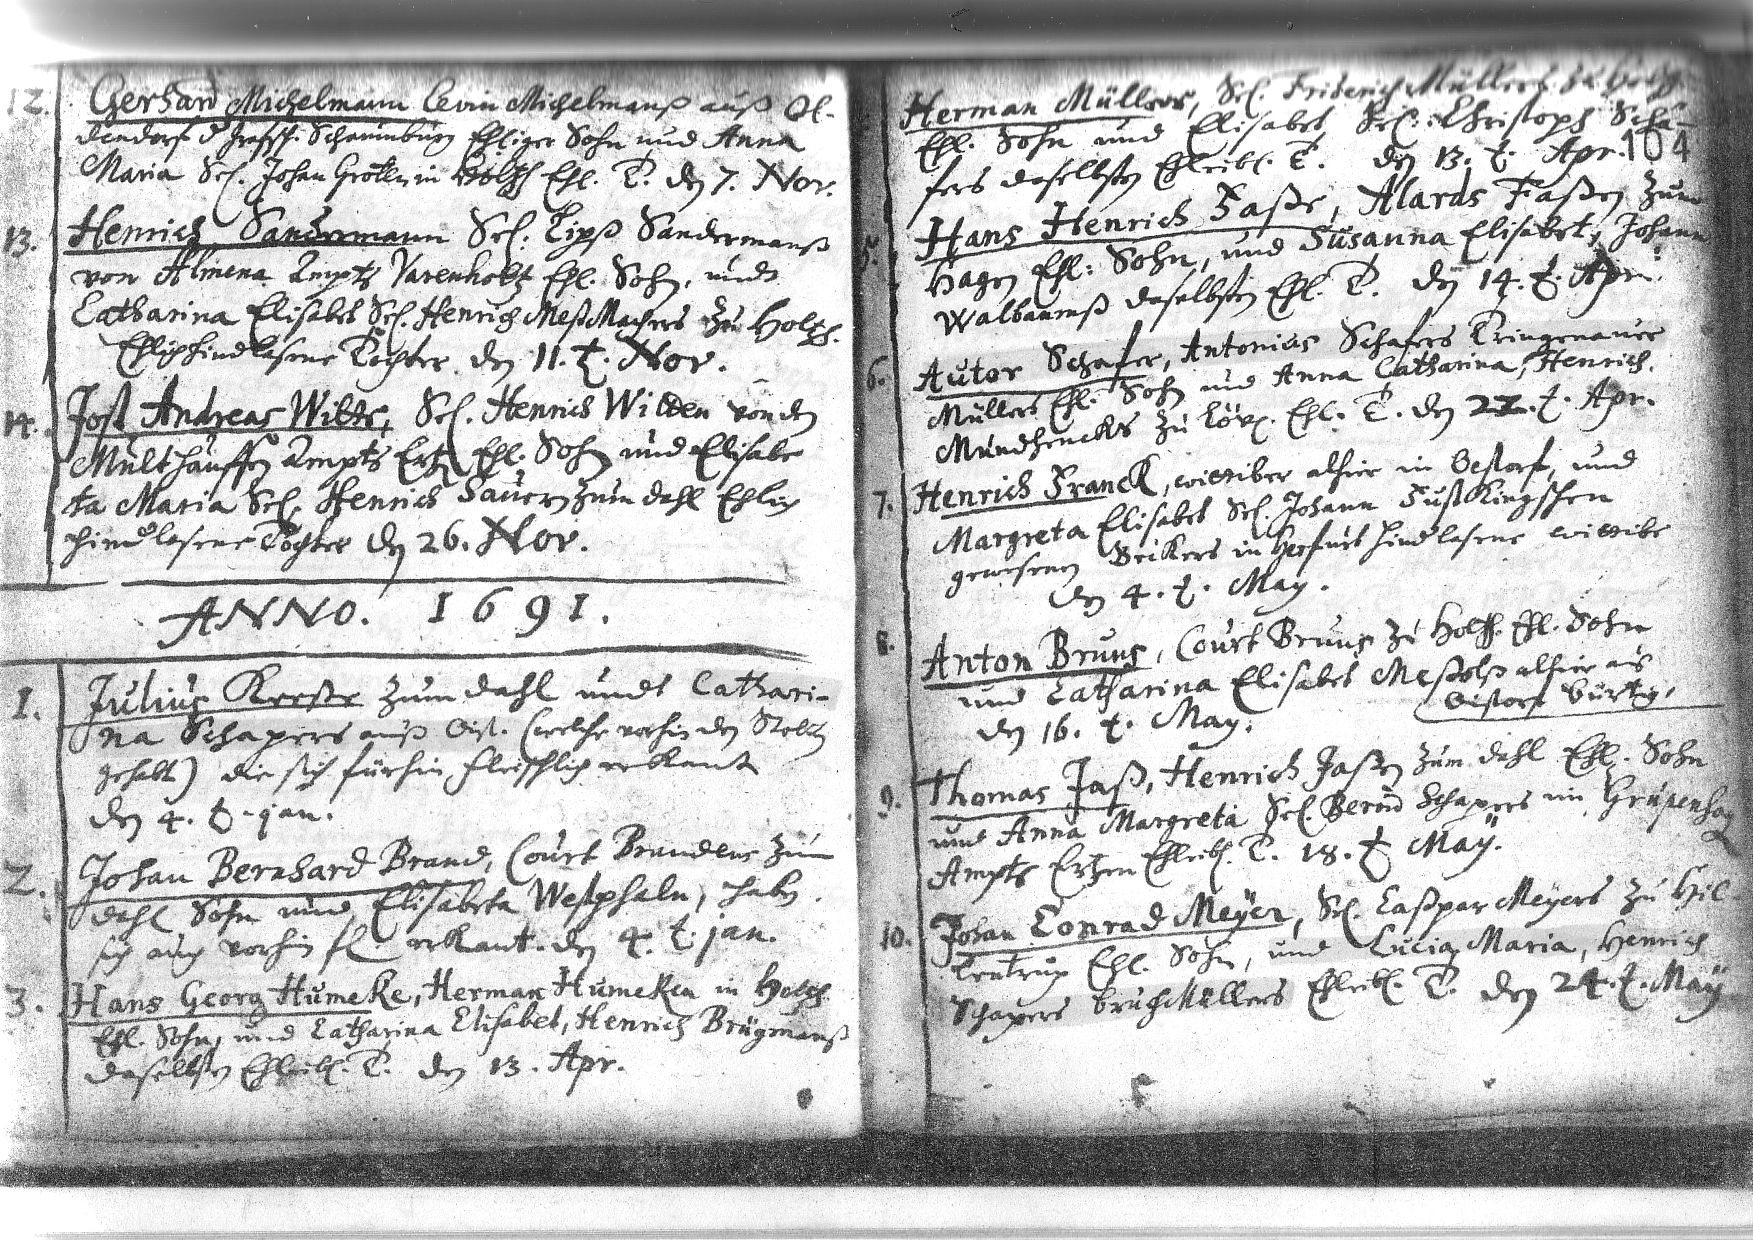 12. Gerhard Michelmann Levin Michelmanß auß Ol-
dendorf d Graffsch. Schaumburg Ehliger Sohn und Anna
Maria Sel. Johan Grotten in Ehl. T. den 7. Nov.
13. Henrich Sandermann Sel: Lipß Sandermanß
von Almena Ampts Varenholtz Ehl. Sohn, undt
Catharina Elisabet Sel. Henrich MeßMachers zu Holtzh.
Ehlich hindlasene Tochter den 11. t. Nov.
14. Jost Andreas Witte, Sel. Henrich Witten von den
Multhäuffen Ampts Ertzen Ehl. Sohn und Elisabe
ta Maria Sel. Henrich Sauern zum dahl Ehlig
hindlasene Tochter den 26. Nov.
ANNO. 1691.
1. Julius Kreste zum dahl undt Cathari-
na Schapers auß Öist. (welche vorhin den Stoltz
gehabt) die sich fürhin fleischlich erkant
den 4. t. jan.
2. Johan Bernhard Brand, Court Brandens zum
dahl Sohn und Elisabeta Westphaln, haben
sich auch vorhin fl erkant. den 4. t. jan.
3. Hans Georg Humeke, Herman Humeken in Holtzh.
Ehl. Sohn, und Catharina Elisabet, Henrich Brügmanß
daselbsten Ehleibl. T. den 13. Apr.
Herman Müller, Sel. Friderich Müllers zu
Ehl. Sohn und Elisabet Sel: Christoph Schä-
fers daselbsten Ehleibl. T. den 13. t. Apr. 104
5. Hans Henrich Faße, Alards Faßen zum
Hagen Ehl: Sohn, und Susanna Elisabet, Johann
Walbaumß daselbsten Ehl. T. den 14. t. Apr.
6. Autor Schafer, Antonius Schafers
Müllers Ehl. Sohn und Anna Catharina, Henrich
Mundhencks zu Ehl. T. den 22. t. Apr.
7. Henrich Franck, wittiber alhier in Oestorf, und
Margreta Elisabet Sel. Johann Fustkingschen
gewesenen Beckers in Herfurt hindlasene wittibe
den 4. t. May.
8. Anton Bruns, Court Bruns zu Holtzh. Ehl. Sohn
und Catharina Elisabet alhier aus
Oistorf bürtig,
den 16. t. May.
9. Thomas Jaß, Henrich Jaßen zum dahl Ehl. Sohn
und Anna Margreta Sel. Bernd Schapers im Grupenhag
Ampts Ertzen Ehleibl. T. 18. t May.
10. Johan Conrad Meyer, Sel. Caßpar Meyers zu Hil-
lentrup Ehl. Sohn, und Lucia Maria, Henrich
Schapers bruchMüllers Ehleibl. T. den 24. t. May